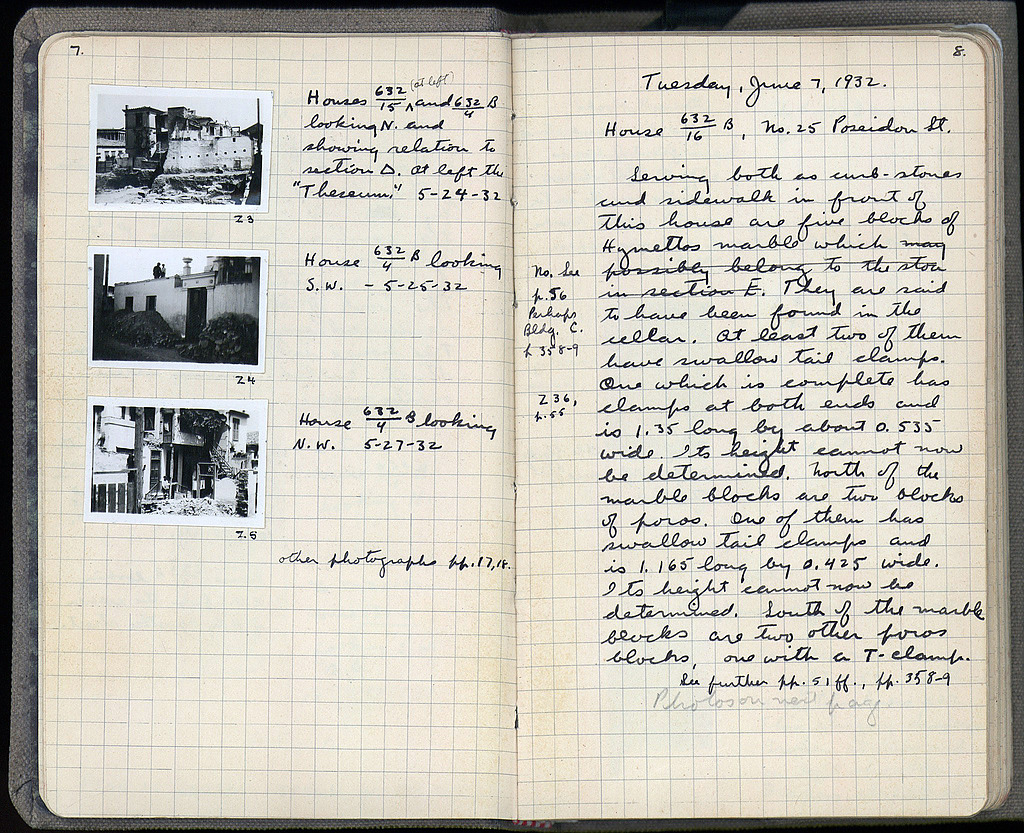 7.
(at left)
Houses 632/15 ∧ and 632/4 B
looking N. and
showing relation to
section Δ. At left the
"Theseum." 5-24-32
Z3
House 632/4 B looking
S.W. - 5-25-32
Z4
House 632/4 B looking
N.W. 5-27-32
Z5
other photographs pp. 17, 18.
8.
Tuesday, June 7, 1932.
House 632/16 B, No. 25 Poseidon St.
Serving both as curb-stones
and sidewalk in front of
this house are five blocks of
Hymettos marble which may
possibly belong to the stoa
in section E. They are said
to have been found in the
cellar. At least two of them
have swallow tail clamps.
One which is complete has
clamps at both ends and
is 1.35 long by about 0.535
wide. Its height cannot now
be determined. North of the
marble blocks are two blocks
of poros. One of them has
swallow tail clamps and
is 1.165 long by 0.425 wide.
Its height cannot now be
determined. South of the marble
blocks are two other poros
blocks, one with a T-clamp.
See further pp. 51 ff., pp. 358-9
Photos on next page.
No. See
p. 56
Perhaps
Bldg. C.
p. 358-9
Z36,
p. 55